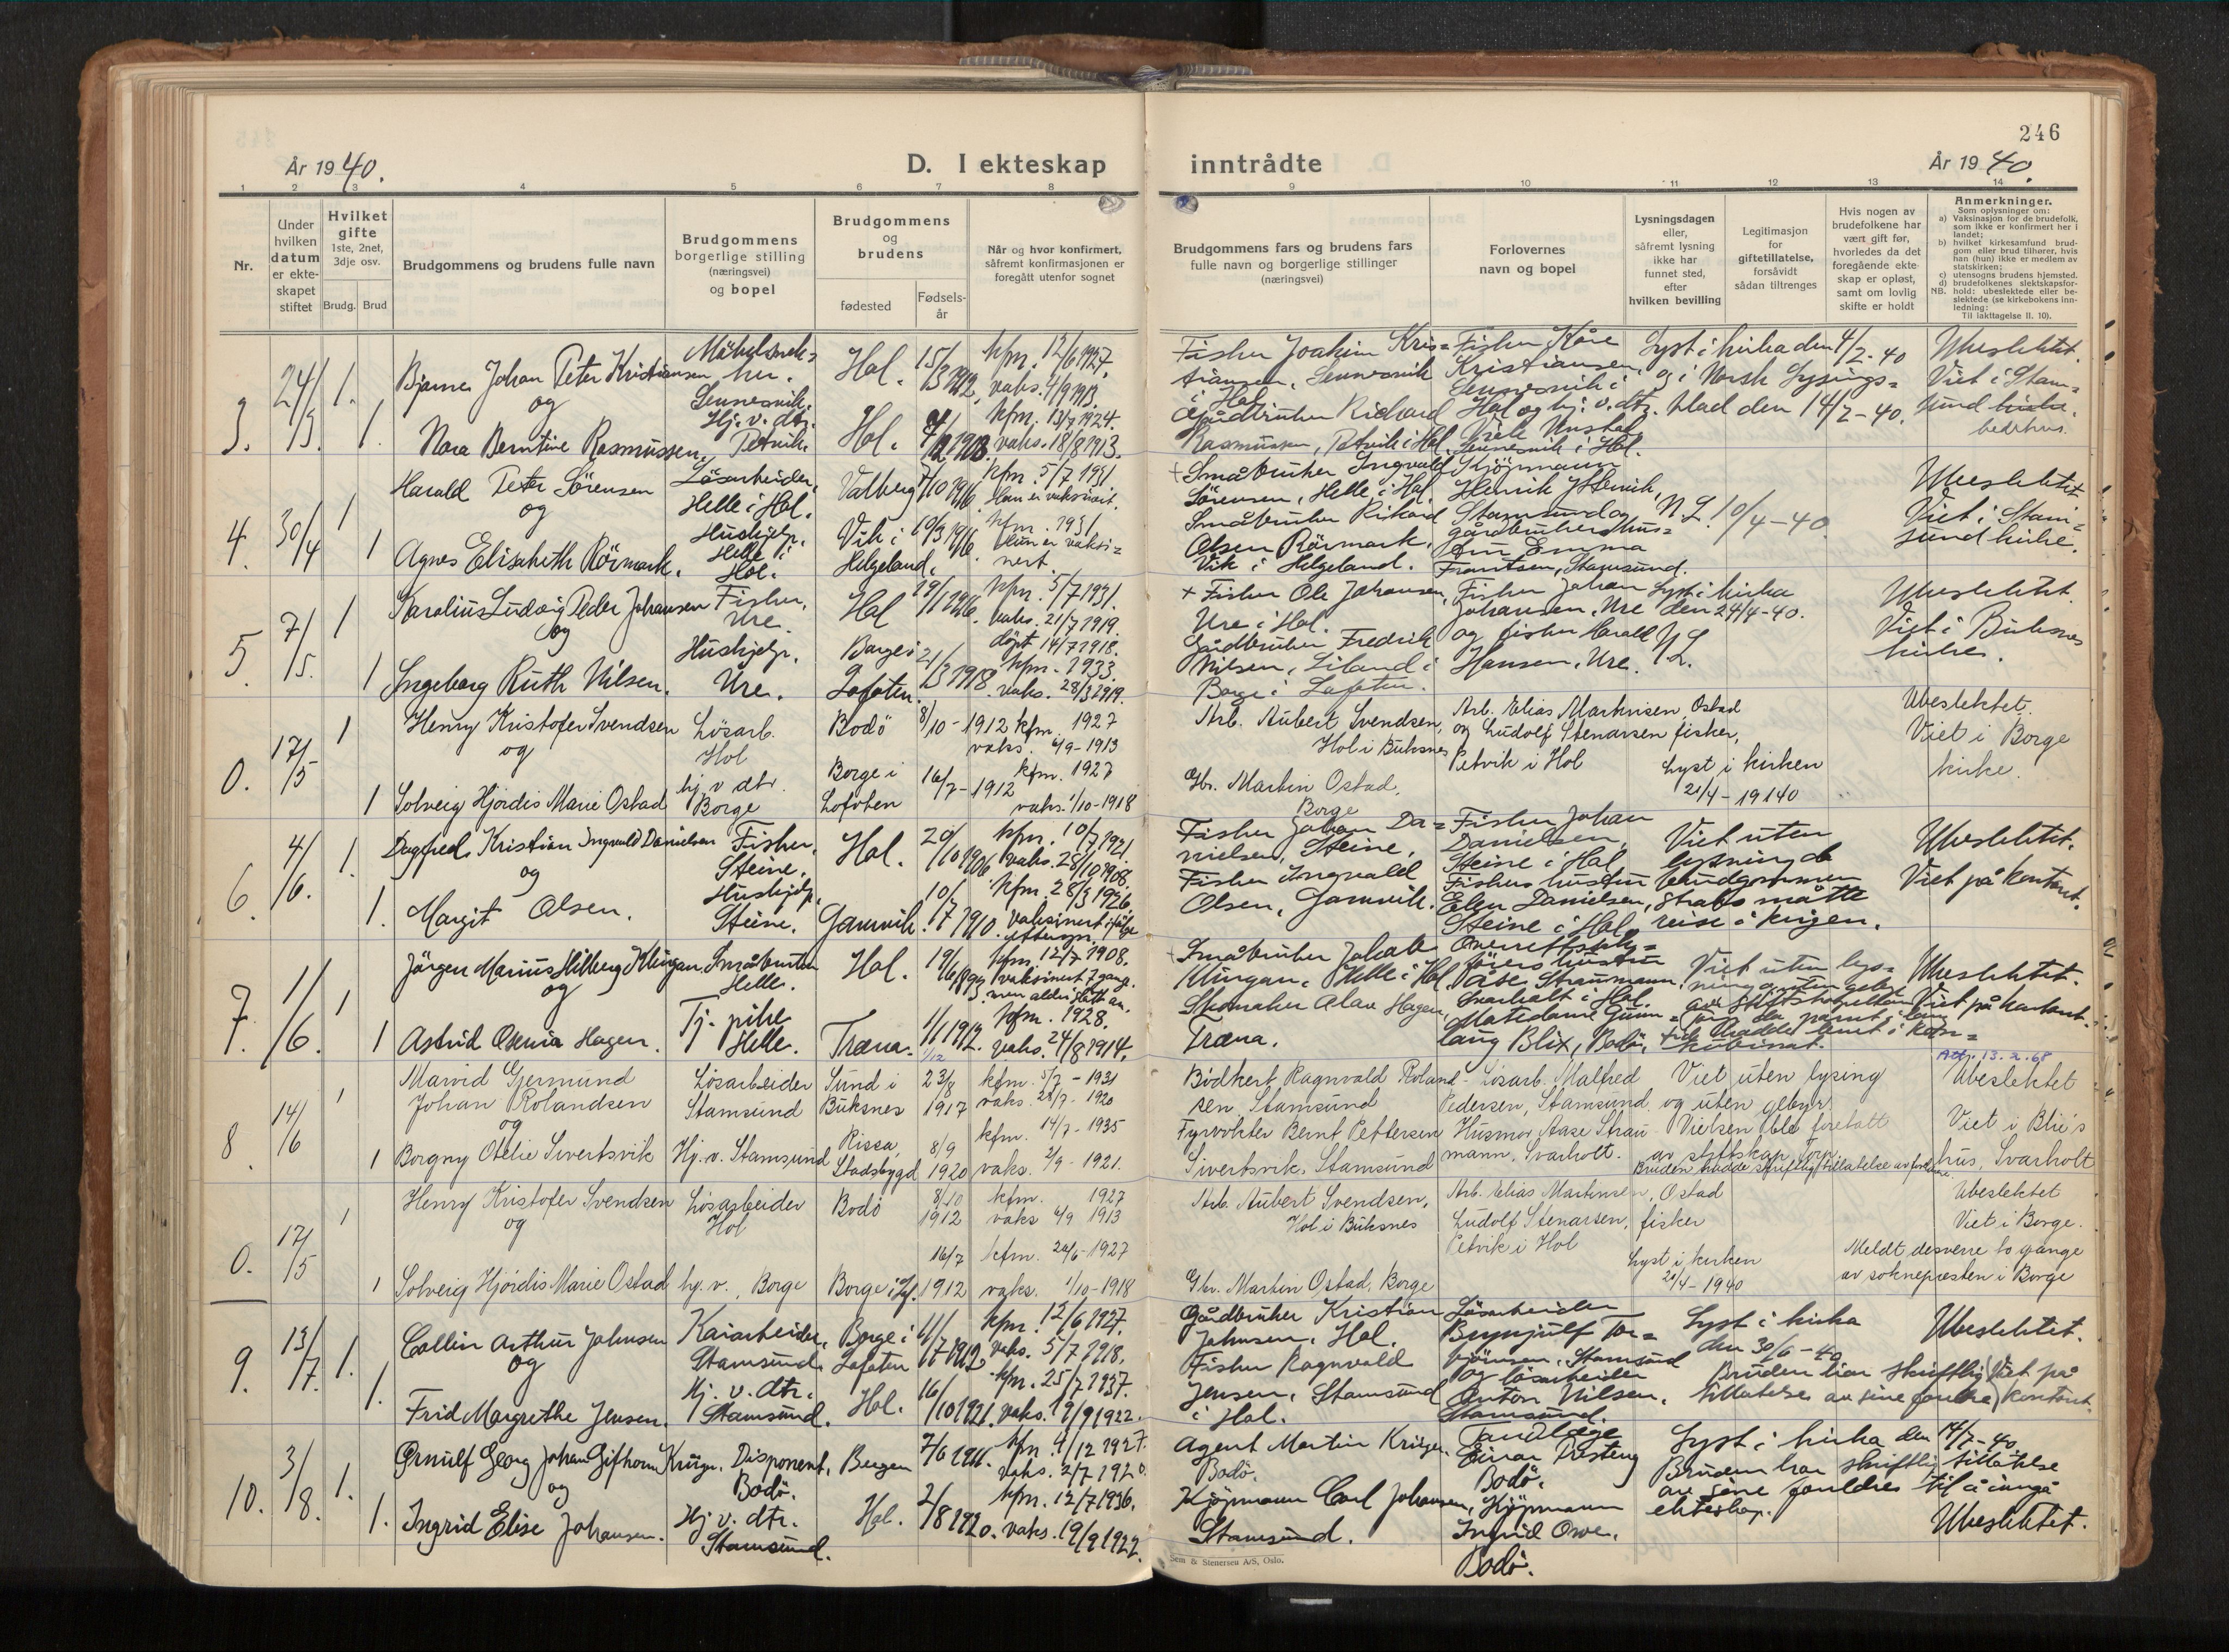 246
År 1940.
D. I ekteskap inntrådte
År 1940.
1 2 3 4 5 6 7 8 9 10 11 12 13 14
Nr.
Under hvilken datum er ekte- skapet stiftet
Hvilket gifte 1ste, 2net, 3dje osv.
Brudg. Brud
Brudgommens og brudens fulle navn
Brudgommens borgerlige stilling (næringsvei) og bopel
Brudgommens og brudens
fødested
Fødsels- år
Når og hvor konfirmert, såfremt konfirmasjonen er foregått utenfor sognet
Brudgommens fars og brudens fars fulle navn og borgerlige stillinger (næringsvei)
Forlovernes navn og bopel
Lysningsdagen eller, såfremt lysning ikke har funnet sted, efter hvilken bevilling
Legitimasjon for giftetillatelse, forsåvidt sådan tiltrenges
Hvis nogen av brudefolkene har vært gift før, hvorledes da det foregående ekte- skap er opløst, samt om lovlig skifte er holdt
Anmerkninger.
Som oplysninger om:
a) Vaksinasjon for de brudefolk, som ikke er konfirmert her i landet;
b) hvilket kirkesamfund brud- gom eller brud tilhører, hvis han (hun) ikke er medlem av statskirken;
c) utensogns brudens hjemsted.
d) brudefolkenes slektskapsfor- hold: ubeslektede eller be- slektede (se kirkebokens inn- ledning:
NB.
Til iakttagelse II. 10).
3. 24/3. 1. Bjarne Johan Peter Kristiansen
og
1. Nora Berntine Rasmussen.
Hol. 15/3 1912, kfm. 12/6 1927. vaks. 4/9 1913.
Hj. v. dtr. Petvik. Hol. kfm. 13/7 1924. vaks. 18/8 1913.
Fisker Joakim Kris=
tiansen, Sennesvik
i Hol.
Gårdbruker Richard
Rasmussen, Petvik i Hol.
Fisker Kåre
Kristiansen,
Sennesvik i
Hol og hj. v. dtr.
Sennesvik i Hol.
Lyst i kirka den 4/2-40
og i Norsk Lysings=
blad den 14/2-40.
Ubeslektet.
Viet i Stam=
sund kirke.
bedehus.
4. 30/4 1 Harald Peter Sörensen
og
1 Agnes Elisabeth Rörmark.
Lösarbeider, Helle i Hol. Valberg 7/10 1916. kfm. 5/7 1931. Han er vaksinert.
Hushjelp. Helle i Hol. Vik i Helgeland. 10/3 1916. kfm. 1931. Hun er vaksi= nert.
+ Småbruker Ingvald
Sörensen, Helle i Hol.
Småbruker Rikard
Olsen Rörmark,
Vik i Helgeland.
Kjöpmann
Henrik
Stamsund og
gårdbrukerhus=
Emma
Frantsen, Stamsund.
N.L. 10/4-40.
Ubeslektet.
Viet i Stam=
sund kirke.
5. 7/5. 1 Karolius Ludvig Peder Johansen
og
1 Ingeborg Ruth Nilsen.
Fisker, Ure. Hol 19/1 1916. kfm. 5/7 1931. vaks. 21/7 1919. döpt 14/7 1918.
Hushjelp. Ure. Borge i Lofoten. 21/3 1918. kfm. 1933. vaks. 28/3 1919.
+ Fisker Ole Johansen,
Ure i Hol.
Gårdbruker Fredrik
Nilsen, Liland i
Borge i Lofoten.
Fisker Johan
Johansen, Ure
og fisker Harald
Hansen, Ure.
Lyst i kirka
den 24/4-40.
N.L.
Ubeslektet.
Viet i Buksnes
kirke.
0. 17/5 1 Henry Kristofer Svendsen
og
1 Solveig Hjördis Marie Ostad
Lösarb. Hol Bodö 8/10-1912 kfm. 1927 vaks. 4/9-1913
hj. v dtr. Borge Borge i Lofoten 16/7-1912 kfm. 1927 vaks. 1/10-1918
Arb. Aubert Svendsen,
Hol i Buksnes
Gbr. Martin Ostad,
Borge
Arb. Elias Martinsen Ostad
og Ludolf Stenarsen fisker,
Petvik i Hol
Lyst i kirken
21/4-19140
Ubeslektet.
Viet i Borge
kirke.
6. 4/6. 1. Dagfred Kristian Ingvald Danielsen
og
1. Margit Olsen.
Fisker, Steine. Hol. 20/10 1906 kfm. 10/7 1921. vaks. 28/10 1908.
Hushjelp, Steine. Gamvik. 10/7 1910. kfm. 28/3 1926. vaksinert ifølge
Fisker Johan Da=
nielsen, Steine,
Fisker Ingvald
Olsen, Gamvik.
Fisker Johan
Danielsen,
Steine i Hol
Fiskers hustru
Elen Danielsen,
Steine i Hol.
Viet uten
lysning da
brudgommen
straks måtte
reise i krigen.
Ubeslektet.
Viet på kontoret.
7. 1/6. 1 Jörgen Marius Hilberg Klungan
og
1 Astrid Oxenia Hagen.
Småbruker Helle. Hol. 19/6 1899 kfm. 12/7 1908. vaksinert 3 gang. men aldri slått an.
Tj. pike Helle. Træna. 1/1 1912. kfm. 1928. vaks. 24/8 1914.
+ Småbruker Jakob
Klungan, Helle i Hol
Skomaker Alav Hagen,
Træna.
hustru
Åse Straumann,
Svarholt i Hol.
lang Blix, Bodö.
Viet uten lys=
Ubeslektet.
Viet på kontoret.
8. 14/6 1 Marvid Gjermund
Johan Rolandsen
og
1 Borgny Otelie Sivertsvik
Lösarbeider Stamsund Sund i Buksnes 23/8 1917 kfm. 5/7-1931 vaks. 28/9-1920
Hj. v. Stamsund Rissa, Stadsbygd 8/9 1920 kfm. 14/7-1935 vaks. 2/9-1921.
Bödkert Ragnvald Roland-
sen Stamsund
Fyrvokter Bernt Pettersen
Sivertsvik, Stamsund
Lösarb. Malfred
Pedersen, Stamsund
Husmor Aase Strau-
mann, Svarholt.
Viet uten lysing
og uten gebyr.
Vielsen ble foretatt
Bruden hadde skriftlig tillatelse av foreldrene.
13.2.68
Ubeslektet
Viet i Blix's
hus, Svarholt
0. 17/5 1 Henry Kristofer Svendsen
og
1 Solveig Hjördis Marie Ostad
Lösarbeider Hol Bodö 8/10 1912 kfm. 1927 vaks 4/9 1913
hj. v., Borge Borge i Lof. 16/7 1912 kfm. 26/6-1927 vaks. 1/10-1918
Arb. Aubert Svendsen,
Hol i Buksnes
Gbr. Martin Ostad, Borge
Arb. Elias Martinsen, Ostad
Ludolf Stenarsen, fisker
Petvik i Hol
Lyst i kirken
21/4-1940
Ubeslektet
Viet i Borge.
Meldt desverre to gange
av sokneprесten i Borge
9. 13/7. 1. Collin Arthur Johnsen
og
1. Frid Margrethe Jensen.
Kaiarbeider, Stamsund. Borge i Lofoten 11/7 1912 kfm. 12/6 1927. vaks. 5/7 1918.
Hj. v. dtr. Stamsund. Hol. 16/10 1921. kfm. 25/7 1937. vaks. 19/9 1922.
Gårdbruker Kristian
Johnsen, Hol.
Fisker Ragnvald
Jensen, Stamsund
i Hol.
Lösarbeider
Brynjulf Tor=
björnsen, Stamsund
og lösarbeider
Anton Nilsen,
Stamsund.
Lyst i kirka
den 30/6-40
Bruden har skriftlig
tillatelse av sine foreldre
Ubeslektet.
Viet på
kontoret.
10. 3/8. 1. Ørnulf Georg Johan Gifthorn Krüger.
og
1. Ingrid Elise Johansen.
Disponent, Bodö. Bergen 7/6 1911. kfm. 4/12 1927. vaks. 2/7 1920.
Hj. v. dtr. Stamsund. Hol. 2/8 1920. kfm. 12/7 1936. vaks. 19/9 1922.
Agent Martin Krüger,
Bodö.
Kjöpmann Carl Johansen,
Stamsund.
Tandlæge
Einar Tosteng
Bodö.
Kjöpmann
Ingrid Owe,
Bodö.
Lyst i kirka den 14/7-40
Bruden har skriftlig tillatelse
av sine foreldre til å inngå
ekteskap.
Ubeslektet.
Sem & Stenersen A/S, Oslo.